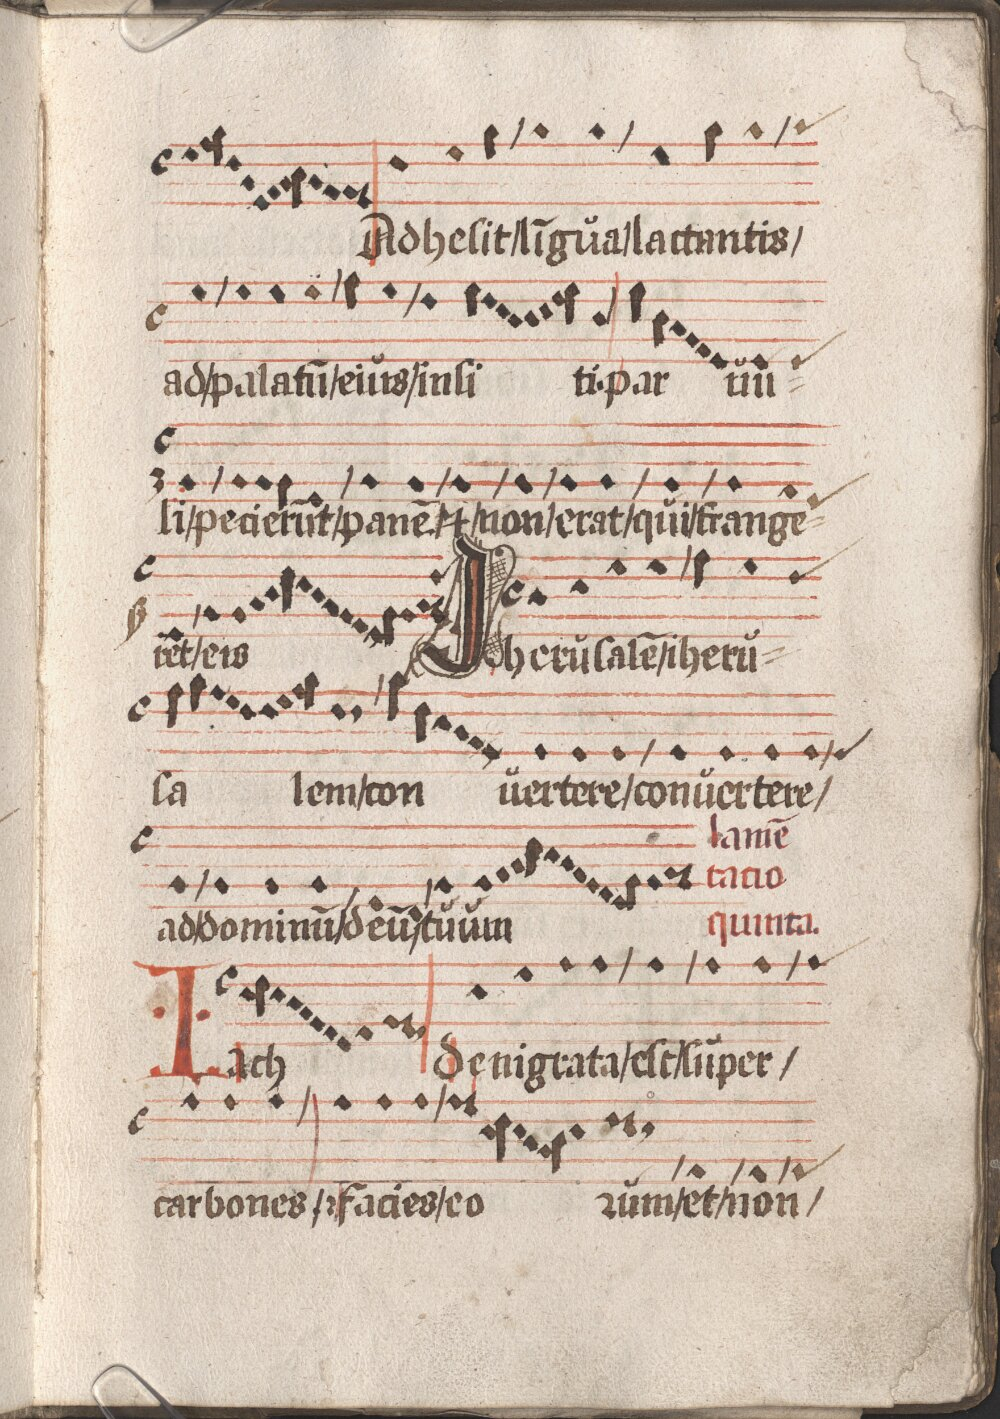 Adhesit/līgua/lactantis/
ad/palatū/eius/insi ti·par uu=
li/pecierūt/panē/⁊/non/erat/qui/frange=
rēt/eis Jherusalē/iheru=
sa lem/con uertere/conuertere/
lamē
tacio
ad/dominū/deū/tuum quinta.
Iach denigrata/est/super/
carbones/facies/eo rum/et/non/